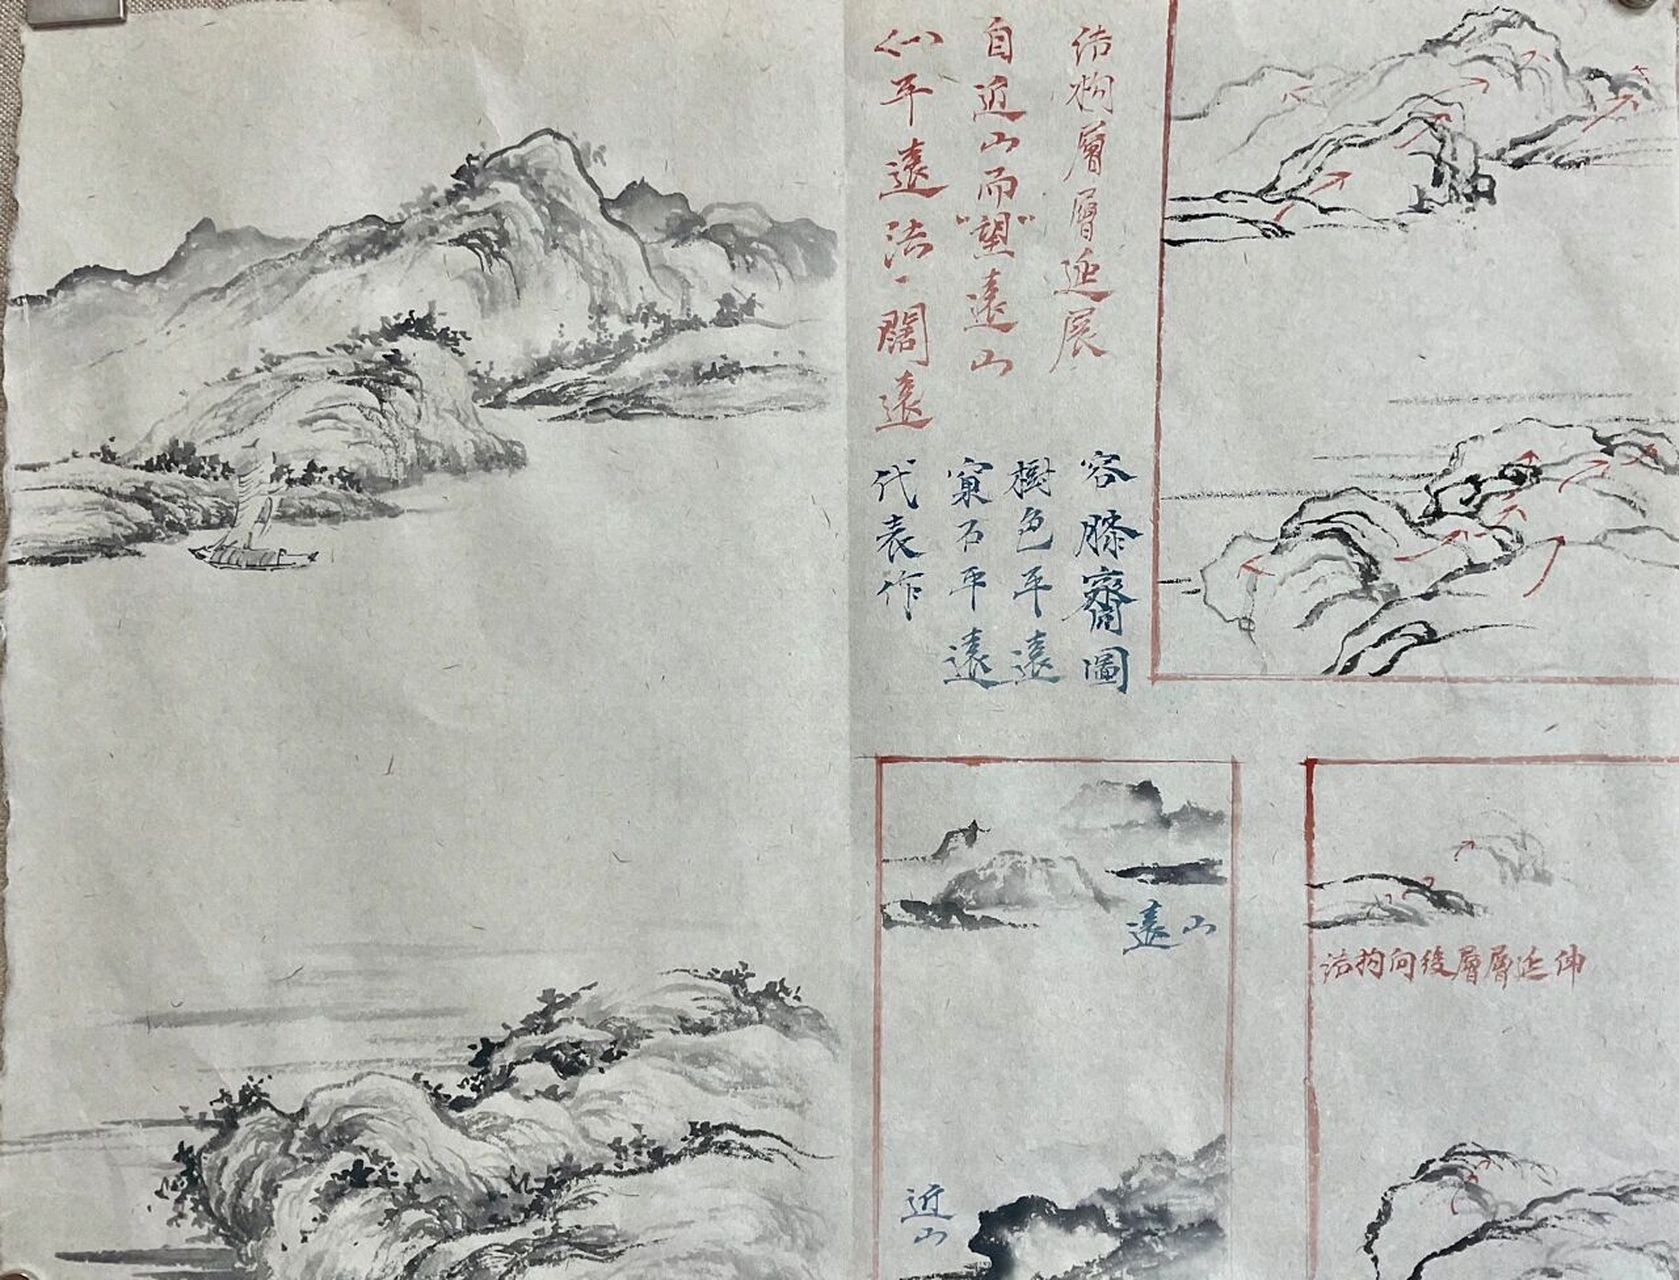 (一)平遠法、闊遠
自近山而"望"遠山
结构層層延展
代表作
窠石平遠
樹色平遠
容膝齋圖
遠山
近山
结构向後層層延伸